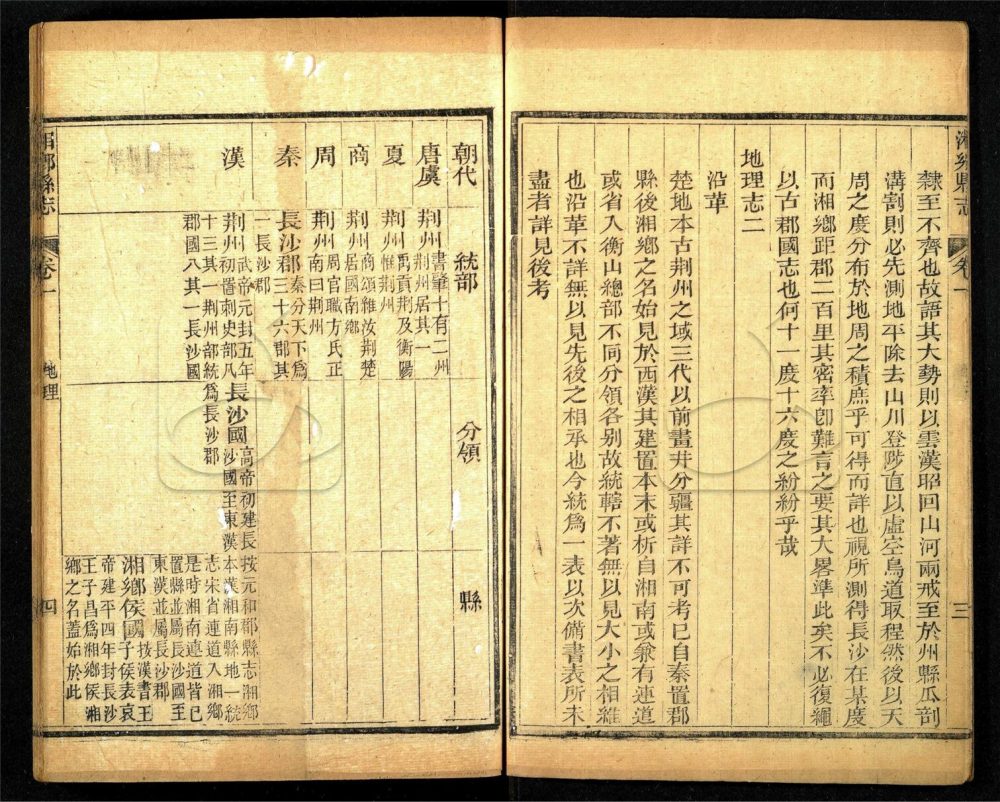 湘鄉縣志
卷一
三
隸至不齊也故語其大勢則以雲漢昭回山河兩戒至於州縣瓜剖
溝割則必先測地平除去山川登陟直以虛空鳥道取程然後以天
周之度分布於地周之積庶乎可得而詳也視所測得長沙在某度
而湘鄉距郡二百里其密率卽難言之要其大畧準此矣不必復繩
以古郡國志也何十一度十六度之紛紛乎哉
地理志二
沿革
楚地本古荆州之域三代以前畫井分疆其詳不可考已自秦置郡
縣後湘鄉之名始見於西漢其建置本末或析自湘南或兼有連道
或省入衡山總部不同分領各別故統轄不著無以見大小之相維
也沿革不詳無以見先後之相承也今統爲一表以次備書表所未
盡者詳見後考
朝代
統部
分領
縣
唐虞
荆州書肇十有二州
荆州居其一
夏
荆州禹貢荆及衡陽
惟荆州
商
荆州商頌維汝荆楚
居國南鄉
周
荆州周官職方氏正
南曰荆州
秦
長沙郡秦分天下爲
三十六郡其
一長沙郡
漢
荆州武帝元封五年
初置刺史部凡
十三其一荆州部統
郡國八其一長沙國
長沙國高帝初建長
沙國至東漢
爲長沙郡
按元和郡縣志湘鄉
本漢湘南縣地一統
志宋省連道入湘鄉
是時湘南連道皆已
置縣並屬長沙國至
東漢並屬長沙郡
湘鄉侯國按漢書王
子侯表哀
帝建平四年封長沙
王子昌爲湘鄉侯湘
鄉之名蓋始於此
湘鄉縣志
卷一
地理
四